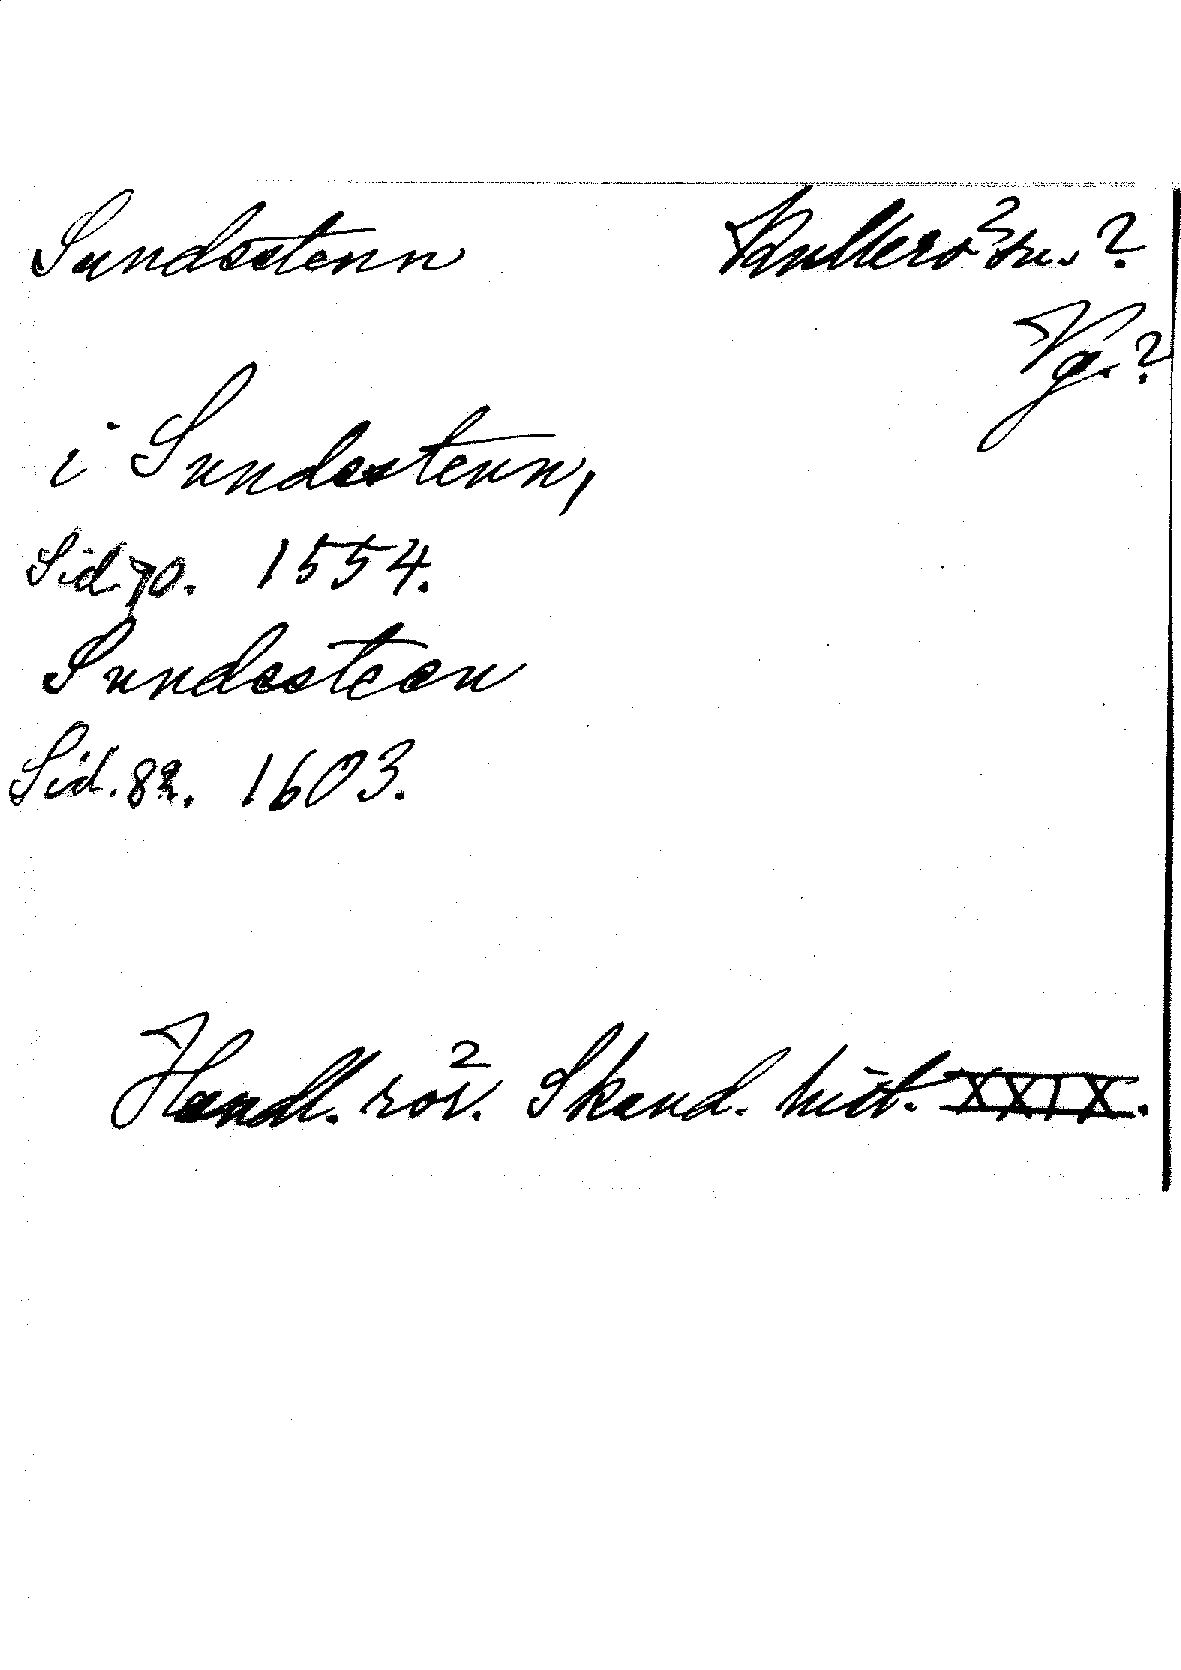 Sundsstenn Kullerö² sn.?
Vg.?
i Sundestenn,
Sid. 70. 1554.
Sundssteen
Sid. 82. 1603.
Handl. rör². Skand. hist. XXIX.